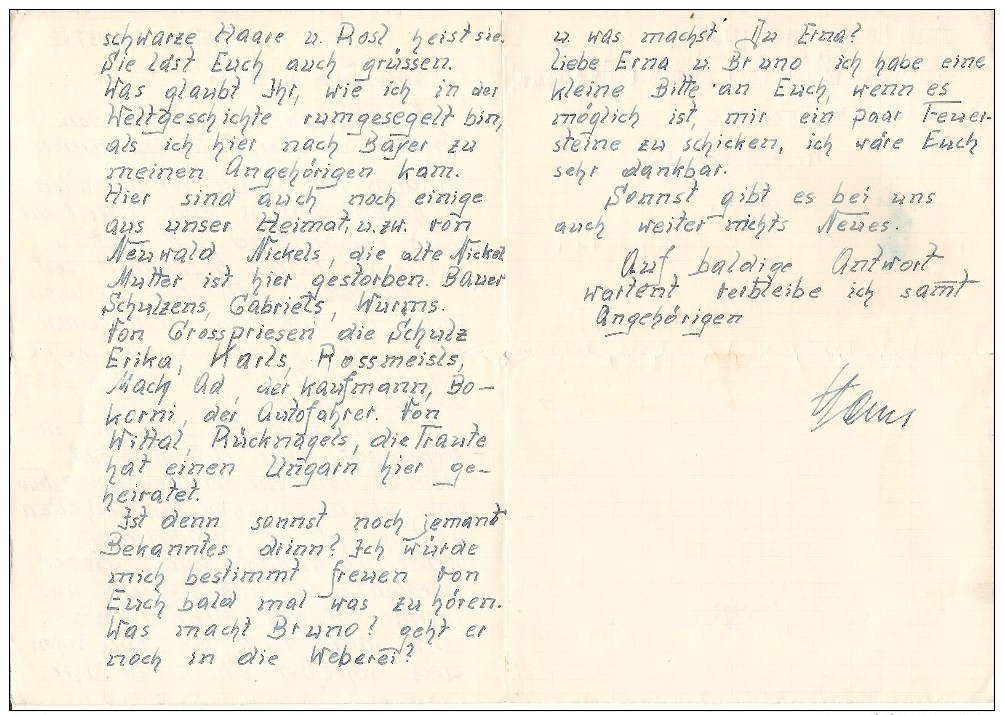 schwarze Haare u. Rosl heist sie.
Sie läst Euch auch grüssen.
Was glaubt Ihr, wie ich in der
Weltgeschichte rumgesegelt bin,
als ich hier nach Bayer zu
meinen Angehörigen kam.
Hier sind auch noch einige
aus unser Heimat, u. zw. von
Neuwald Nickels, die alte Nickel
Mutter ist hier gestorben. Bauer
Schulzens, Gabriels, Wurms.
Von Grosspriesen die Schulz
Erika, Karls, Rossmeisls,
Mach Ad, der Kaufmann, Bo-
korni, der Autofahrer. Von
Wittal, Rücknagels, die Traute
hat einen Ungarn hier ge-
heiratet.
Ist denn sonnst noch jemant
Bekanntes drinn? Ich würde
mich bestimmt freuen von
Euch bald mal was zu hören.
Was macht Bruno? geht er
noch in die Weberei?
u. was machst Du Erna?
liebe Erna u. Bruno ich habe eine
kleine Bitte an Euch, wenn es
möglich ist, mir ein paar Feuer-
steine zu schicken, ich wäre Euch
sehr dankbar.
Sonnst gibt es bei uns
auch weiter nichts Neues.
Auf baldige Antwort
wartent verbleibe ich samt
Angehörigen
Hans